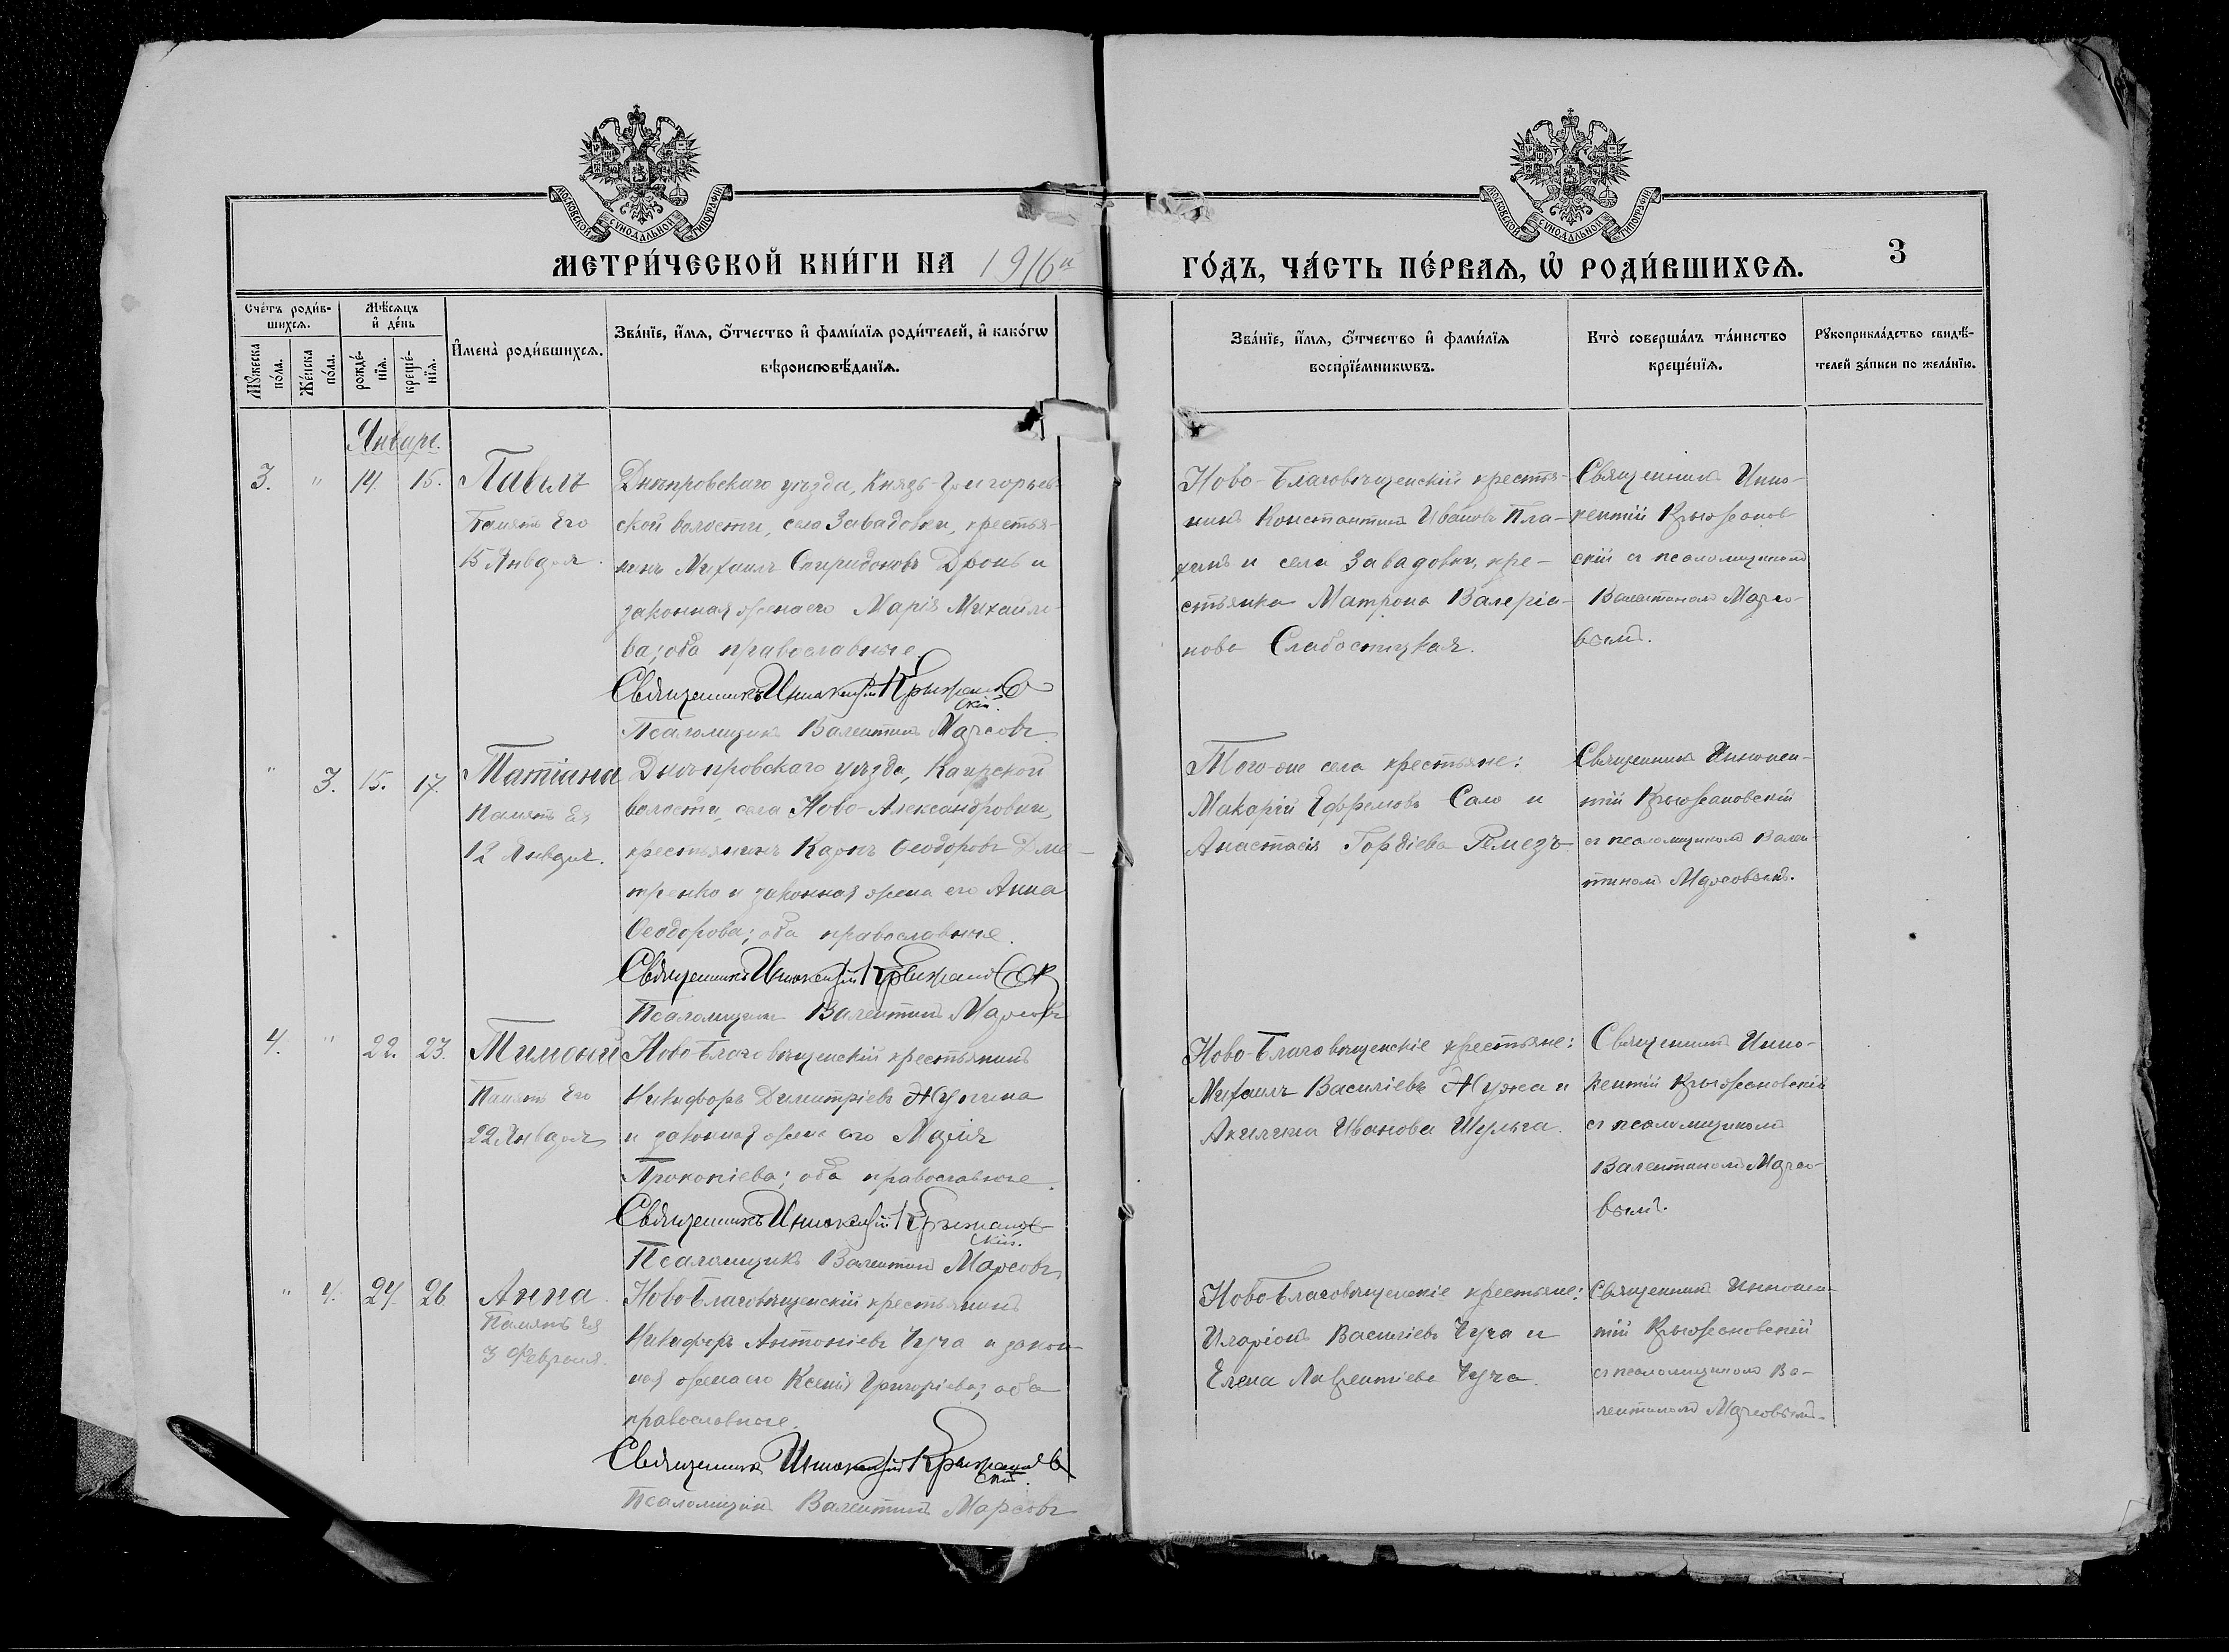 МОСКОВСКОЙ СУНОДАЛЬНОЙ ТИПОГРАФІИ
МОСКОВСКОЙ СУНОДАЛЬНОЙ ТИПОГРАФІИ
МЕТРИ́ЧЕСКОЙ КНИ́ГИ НА 1916й
ГО́ДЪ, ЧА́СТЬ ПЕ́РВАЯ, Ѡ РОДИ́ВШИХСЯ.
3
Сче́тъ роди́в-
шихся.
Мѣ́сяцъ
и҆ де́нь
Мꙋ́жеска
по́ла.
Же́нска
по́ла.
рожде́-
нїя.
креще́-
нїя.
И҆мена̀ роди́вшихся.
Зва́нїе, и҆́мя, ѻ҆́тчество и҆ фами́лїя роди́телей, и҆ како́гѡ
вѣроисповѣ́данїя.
Зва́нїе, и҆́мя, ѻ҆́тчество и҆ фами́лїя
воспрїе́мникѡвъ.
Кто̀ соверша́лъ та́инство
креще́нїя.
Рꙋкоприкла́дство свидѣ́-
телей за́писи по жела́нїю.
Январь.
3. " 14. 15. Павелъ
Память Его
15 Января.
Днѣпровскаго уѣзда, Князь-Григорьев-
ской волости, села Завадовки, крестья-
нинъ Михаилъ Спиридоновъ Дронь и
законная жена его Марія Михайло-
ва; оба православные.
Священникъ Иннокентій Крыжанов
скій.
Псаломщикъ Валентинъ Марсовъ.
Ново-Благовѣщенскій крестья-
нинъ Константинъ Ивановъ Пла-
и села Завадовки, кре-
стьянка Матрона Валеріа-
нова Слабостицкая.
Священникъ Инно-
кентій Крыжанов
скій съ псаломщикомъ
Валентиномъ Марсо-
вымъ.
" 3. 15. 17. Татіана
Память Ея
12 Января.
Днѣпровскаго уѣзда, Каирской
волости, села Ново-Александровки,
крестьянинъ Карпъ Ѳеодоровъ Дми-
тренко и законная жена его Анна
Ѳеодорова; оба православные.
Священникъ Иннокентій Крыжановск
Псаломщикъ Валентинъ Марсовъ
Того-же села крестьяне:
Макарій Ефремовъ Сало и
Анастасія Гордіева Ремезъ
Священникъ Иннокен-
тій Крыжановскій
съ псаломщикомъ Вален-
тиномъ Марсовымъ.
4. " 22. 23. Тимоѳей
Память Его
22 Января
Ново Благовѣщенскій крестьянинъ
Никифоръ Димитріевъ
и законная жена его Марія
Прокопіева; оба православные.
Священникъ Иннокентій Крыжанов-
скій.
Псаломщикъ Валентинъ Марсовъ
Ново-Благовѣщенскіе крестьяне:
Михаилъ Василіевъ Нужа и
Акилина Иванова Шульга.
Священникъ Инно-
кентій Крыжановскій
съ псаломщикомъ
Валентиномъ Марсо-
вымъ.
" 4. 24. 26. Анна
Память Ея
3 Февраля.
Ново-Благовѣщенскій крестьянинъ
Никифоръ Антоніевъ Чуча и закон-
ная жена его Ксенія Григоріева; оба
православные.
Священникъ Иннокентій Крыжанов
скій.
Псаломщикъ Валентинъ Марсовъ
Ново-Благовѣщенскіе крестьяне:
Иларіонъ Василіевъ Чуча и
Елена Лаврентіева Чуча.
Священникъ Иннокен-
тій Крыжановскій
съ псаломщикомъ Ва-
лентиномъ Марсовымъ.